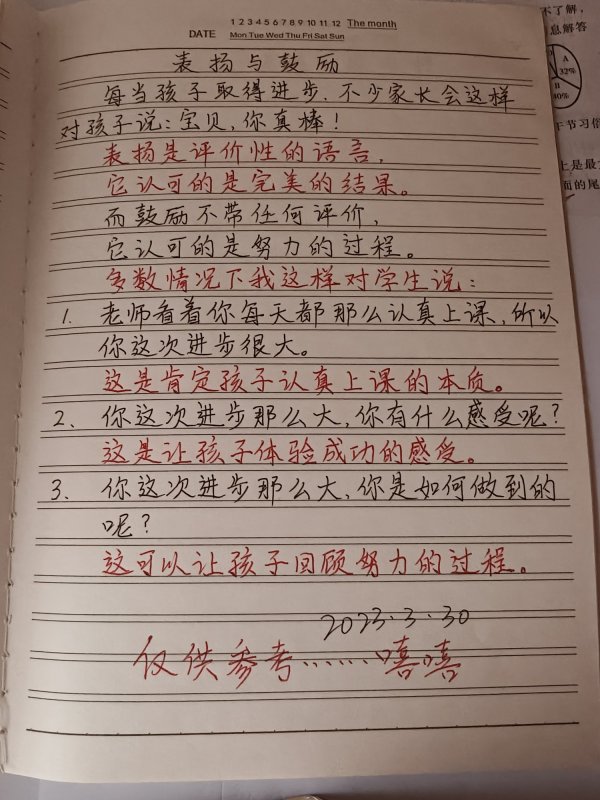 1 2 3 4 5 6 7 8 9 10 11 12 The month
DATE Mon Tue Wed Thu Fri Sat Sun
表扬与鼓励
每当孩子取得进步,不少家长会这样
对孩子说:宝贝,你真棒!
表扬是评价性的语言,
它认可的是完美的结果。
而鼓励不带任何评价,
它认可的是努力的过程。
多数情况下我这样对学生说:
1. 老师看着你每天都那么认真上课,所以
你这次进步很大。
这是肯定孩子认真上课的本质。
2. 你这次进步那么大,你有什么感受呢?
这是让孩子体验成功的感受。
3. 你这次进步那么大,你是如何做到的
呢?
这可以让孩子回顾努力的过程。
2023.3.30
仅供参考……嘻嘻
不了解,
息解答
A
32%
B
40%
节习俗
上是最
面的尾